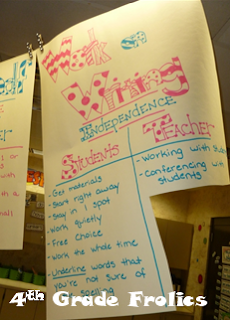 Work on
Writing
Independence
Students
Teacher
- Get materials
- Start right away
- Stay in 1 spot
- Work quietly
- Free choice
- Work the whole time
- Underline words that
you're not sure of
spelling
- Working with students
- Conferencing with
students
4th Grade Frolics